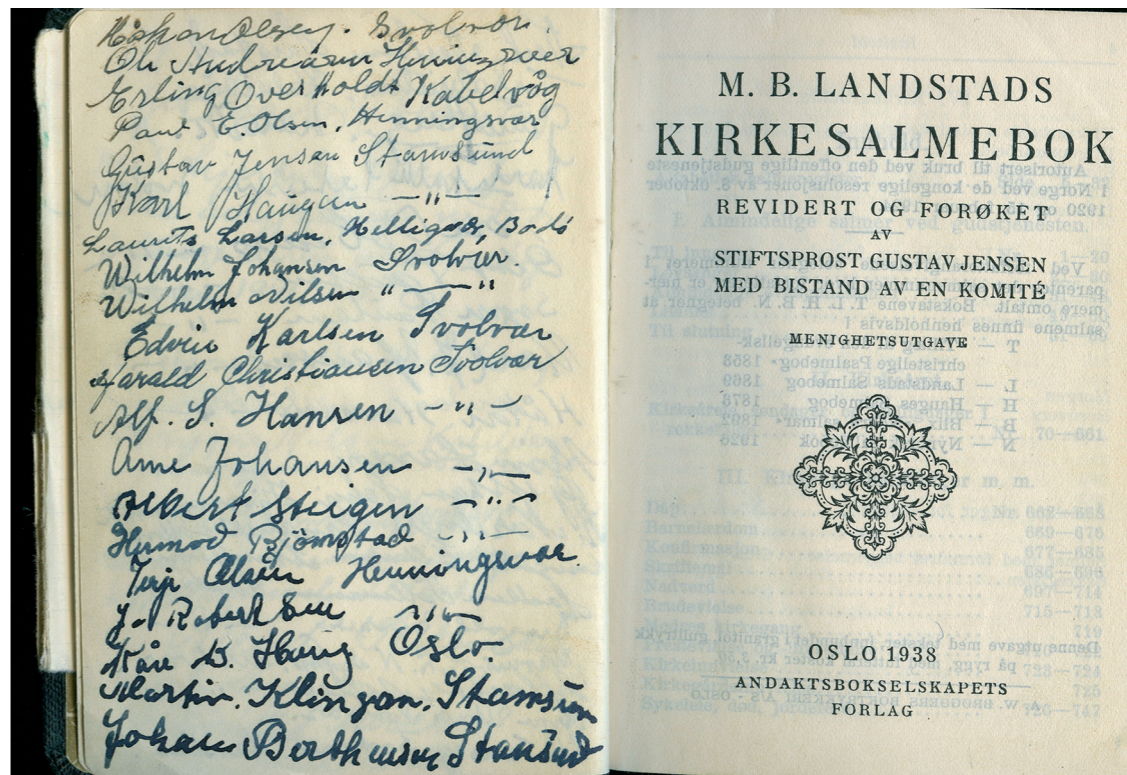 Håkon Olsen. Svolvær.
Ole Andreasen Henningsvær
Erling Overholdt Kabelvåg
Paul E. Olsen, Henningsvær
Gustav Jensen Stamsund
Karl Haugen — " —
Laurits Larsen, Helligvær, Bodö
Wilhelm Johansen Svolvær.
Wilhelm Nilsen " — "
Edvin Karlsen Svolvær
Harald Christiansen Svolvær
Alf. S. Hansen — " —
Arne Johansen — " —
Albert Steigen — " —
Bjørnstad — " —
Olsen Henningsvær.
Robertsen — " —
Kåre B. Haug Oslo
Martin. Klingan. Stamsun
Johan Berthensen Stamsund
M. B. LANDSTADS
KIRKESALMEBOK
REVIDERT OG FORØKET
AV
STIFTSPROST GUSTAV JENSEN
MED BISTAND AV EN KOMITÉ
MENIGHETSUTGAVE
OSLO 1938
ANDAKTSBOKSELSKAPETS
FORLAG